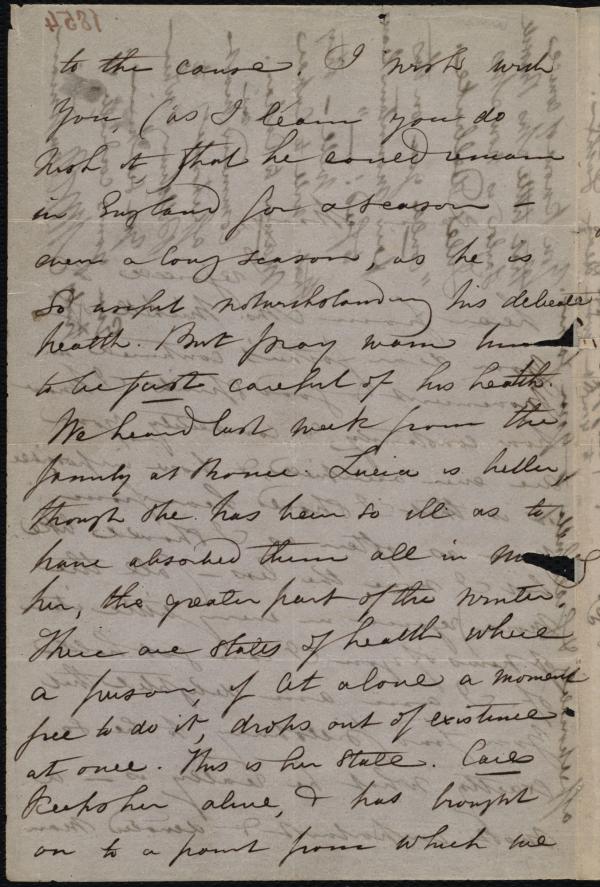 to the cause. I wish with
you, (as I learn you do
wish it, that he could remain
in England for a season –
even a long season, as he is
so useful notwithstanding his delicate
health. But pray warn him
to be first careful of his health.
We heard last week from the
family at Rome. Lucia is better,
though she has been so ill as to
have absorbed them all in
her, the greater part of the winter.
There are states of health where
a person, if let alone a moment
free to do it, drops out of existence
at once. This is her state. Care
keeps her alive, & has brought
on to a point from which we